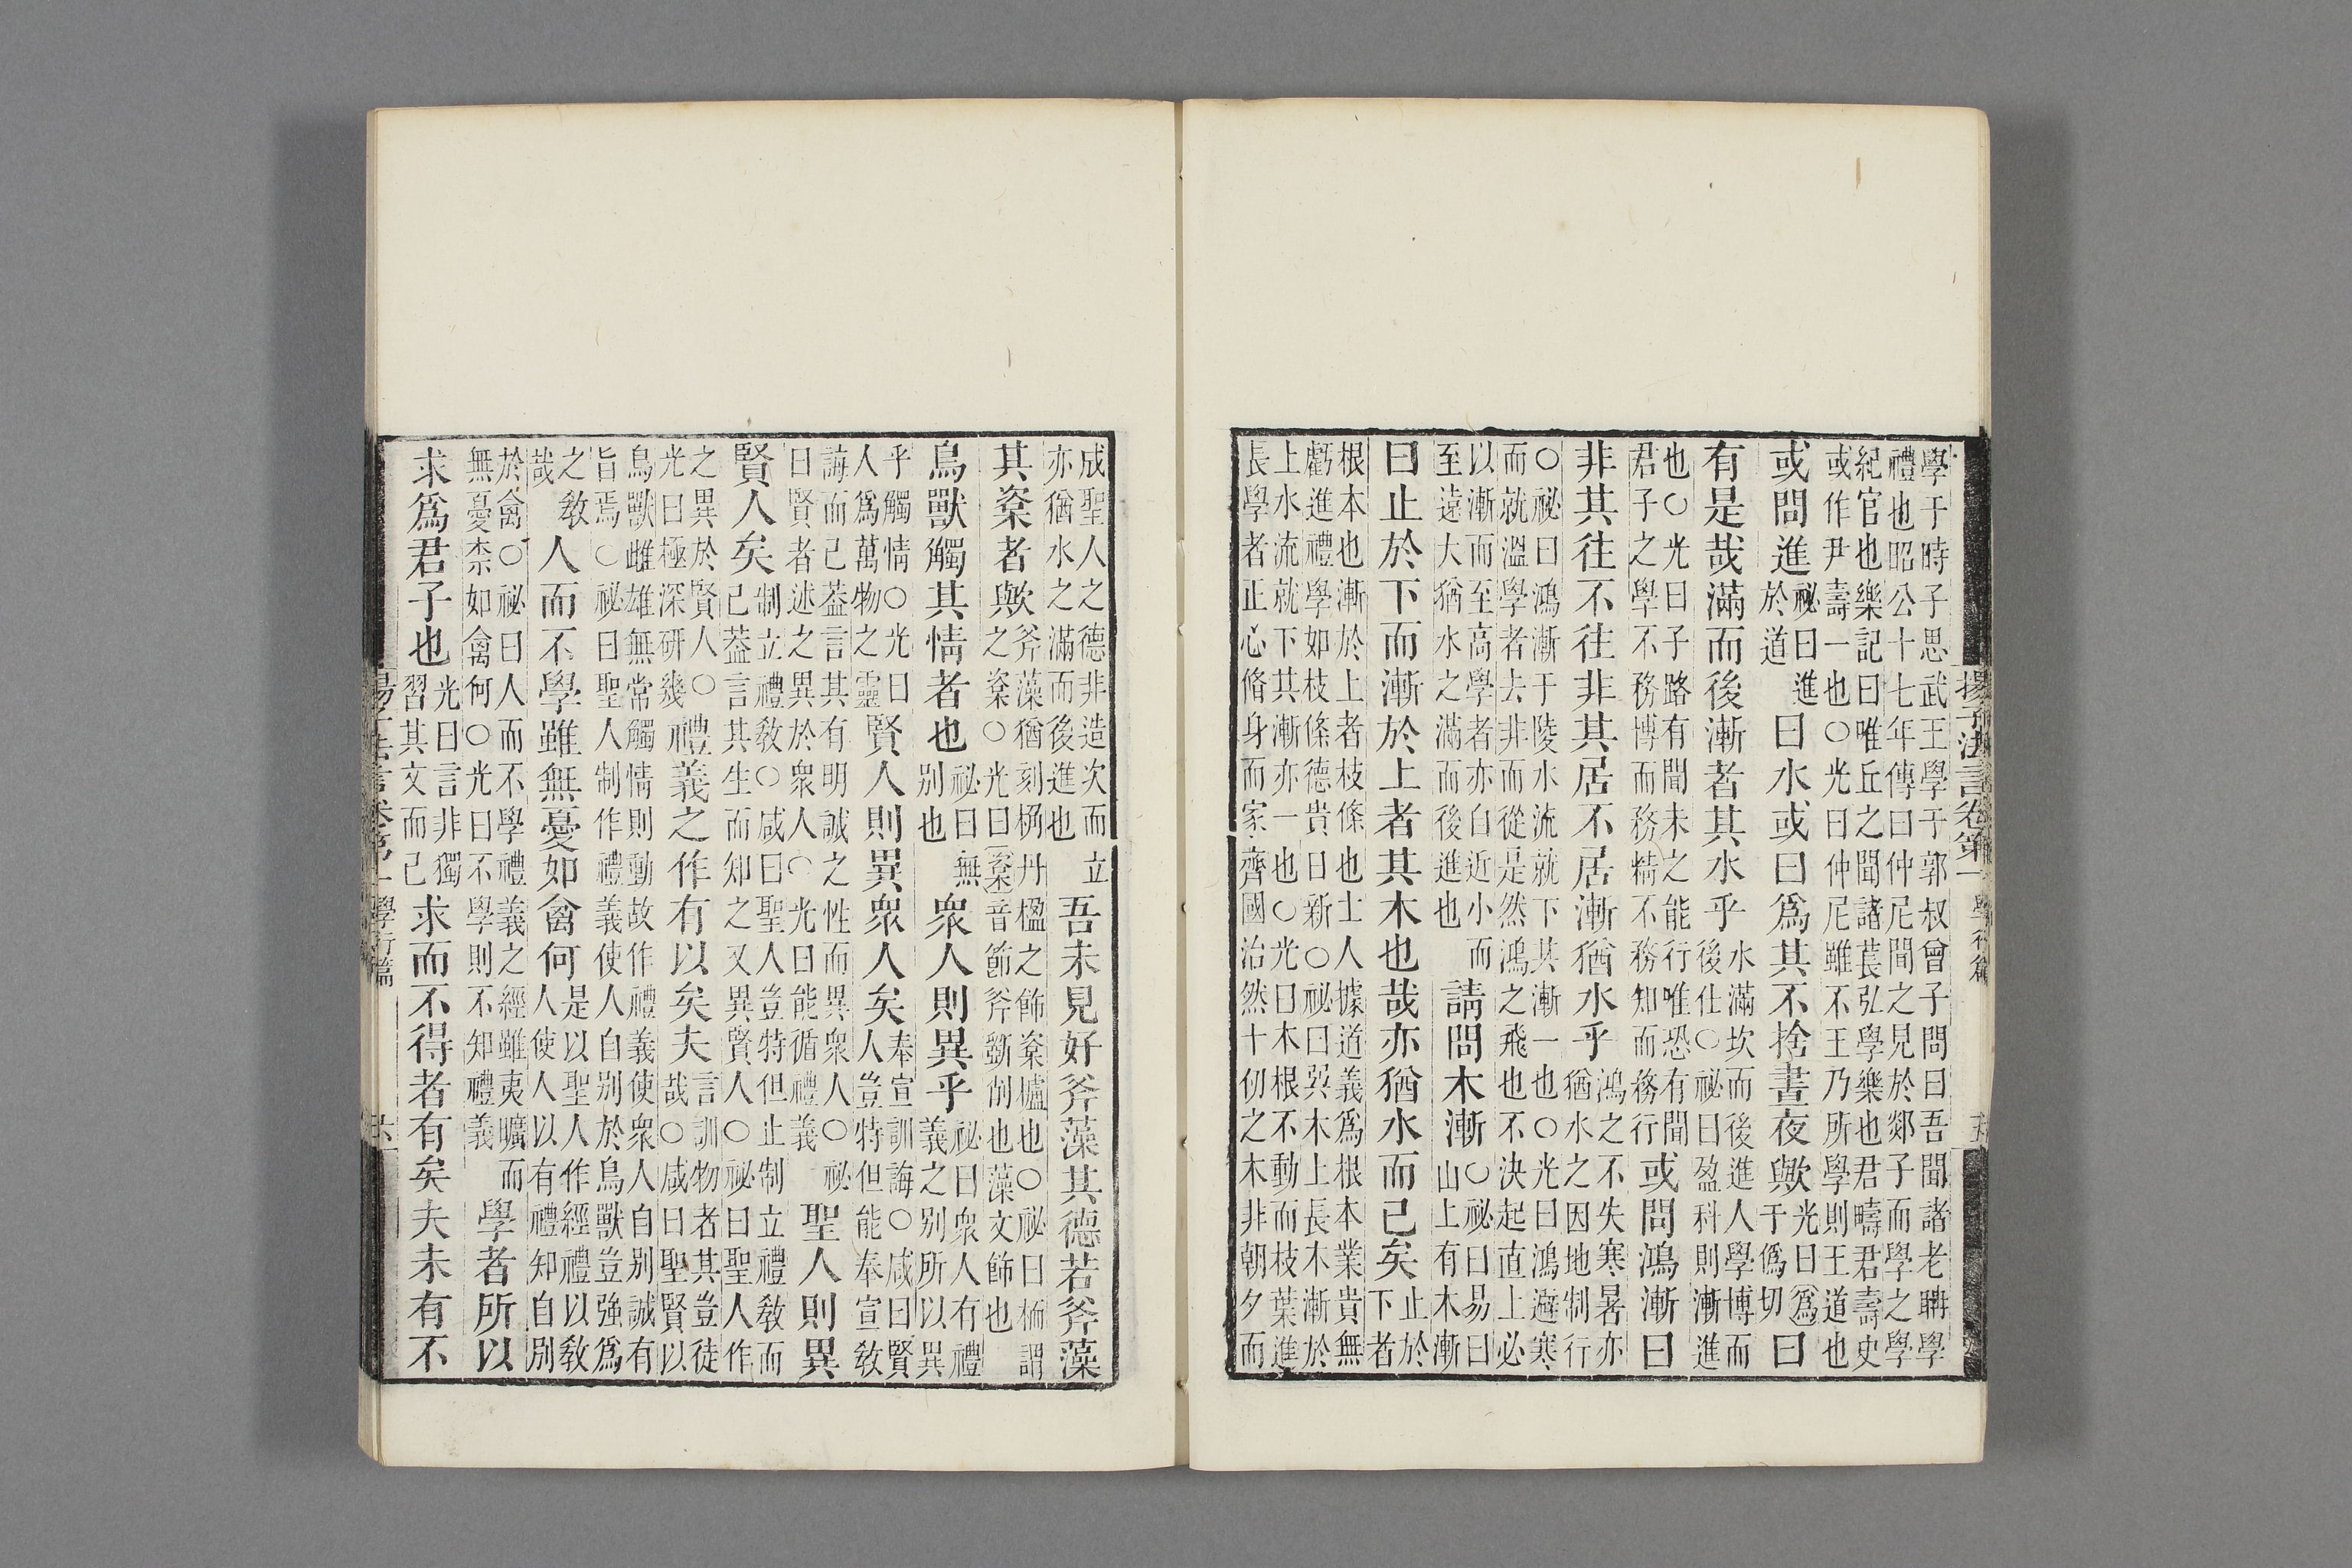 揚子法言卷第一 學行篇
學于時子思武王學于郭叔曾子問曰吾聞諸老聃學
禮也昭公十七年傳曰仲尼聞之見於郯子而學之學
紀官也樂記曰唯丘之聞諸萇弘學樂也君疇君壽史
或作尹壽一也○光曰仲尼雖不王乃所學則王道也
或問進祕曰進於道曰水或曰爲其不捨晝夜歟光曰爲于僞切曰
有是哉滿而後漸者其水乎水滿坎而後進人學博而後仕○祕曰盈科則漸進
也○光曰子路有聞未之能行唯恐有聞君子之學不務博而務精不務知而務行或問鴻漸曰
非其往不往非其居不居漸猶水乎鴻之不失寒暑亦猶水之因地制行
○祕曰鴻漸于陵水流就下其漸一也○光曰鴻避寒
而就溫學者去非而從是然鴻之飛也不決起直上必
以漸而至高學者亦自近小而至遠大猶水之滿而後進也請問木漸○祕曰易曰山上有木漸
曰止於下而漸於上者其木也哉亦猶水而已矣止於下者
根本也漸於上者枝條也士人據道義爲根本業貴無
虧進禮學如枝條德貴日新○祕曰巽木上長木漸於
上水流就下其漸亦一也○光曰木根不動而枝葉進
長學者正心脩身而家齊國治然十仞之木非朝夕而
成聖人之德非造次而立亦猶水之滿而後進也吾未見好斧藻其德若斧藻
其楶者歟斧藻猶刻桷丹楹之飾楶櫨也○祕曰栭謂之楶○光曰楶音節斧斲削也藻文飾也
鳥獸觸其情者也祕曰無别也衆人則異乎祕曰衆人有禮義之别所以異
乎觸情○光曰人爲萬物之靈賢人則異衆人矣奉宣訓誨○咸曰賢人豈特但能奉宣敎
誨而已葢言其有明誠之性而異衆人○祕曰賢者述之異於衆人○光曰能循禮義聖人則異
賢人矣制立禮敎○咸曰聖人豈特但止制立禮敎而已葢言其生而知之又異賢人○祕曰聖人作
之異於賢人○光曰極深研幾禮義之作有以矣夫言訓物者其豈徒哉○咸曰聖賢以
鳥獸雌雄無常觸情則動故作禮義使衆人自别誠有
旨焉○祕曰聖人制作禮義使人自别於鳥獸豈強爲
之敎哉人而不學雖無憂如禽何是以聖人作經禮以敎人使人以有禮知自别
於禽○祕曰人而不學禮義之經雖夷曠而無憂柰如禽何○光曰不學則不知禮義學者所以
求爲君子也光曰言非獨習其文而已求而不得者有矣夫未有不